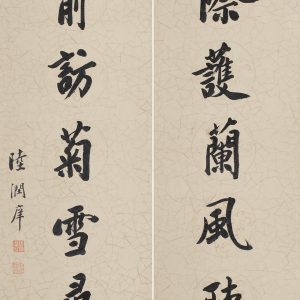 護蘭風
前訪菊雪尋
陸潤庠